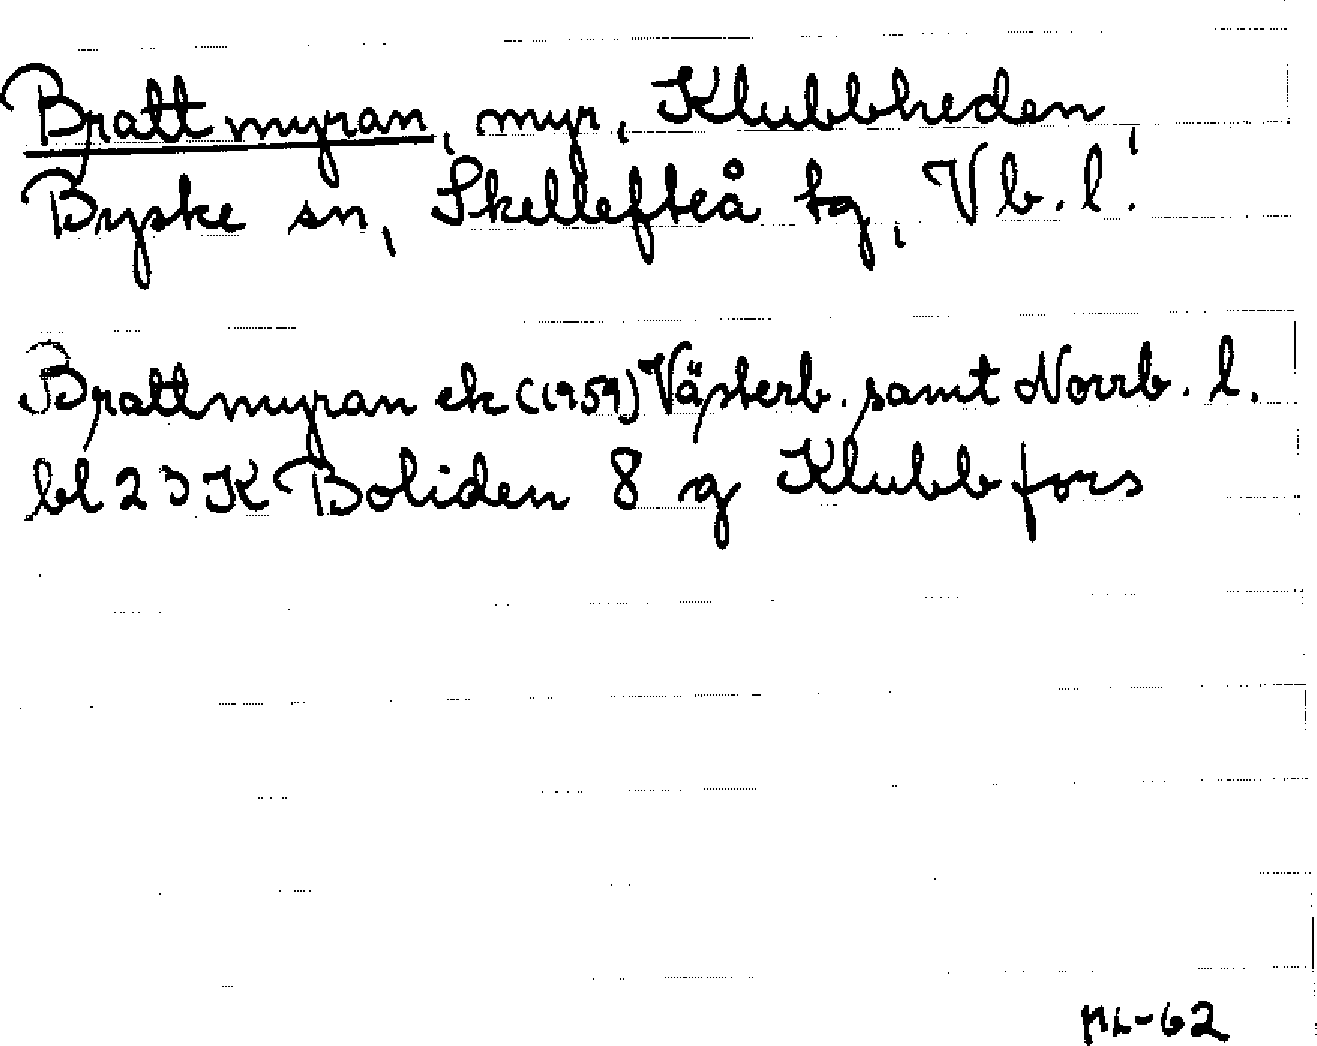 Brattmyran, myr, Klubbheden,
Byske sn, Skellefteå tg, Vb. l.
Brattmyran ek (1959) Västerb. samt Norrb. l.
bl 23 K Boliden 8 g Klubbfors
ML-62